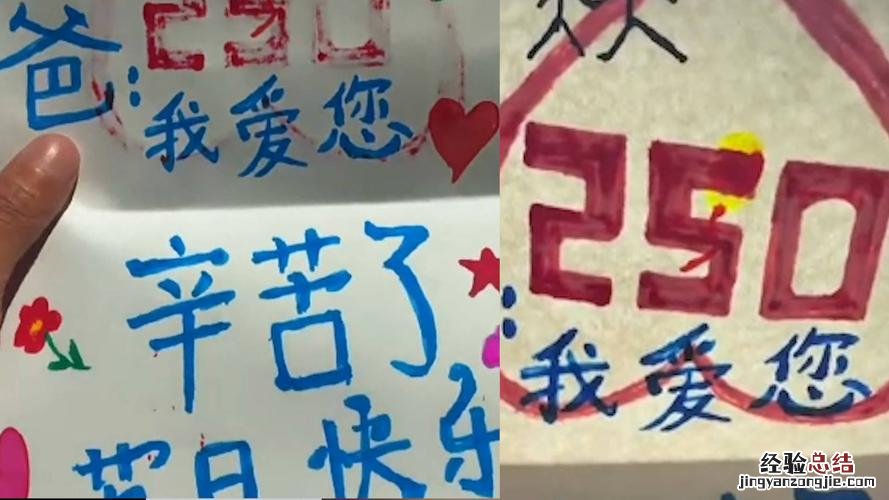 250
爸:
我爱您
辛苦了
节日快乐
250
:我爱您
经验总结
jingyanzongjie.com